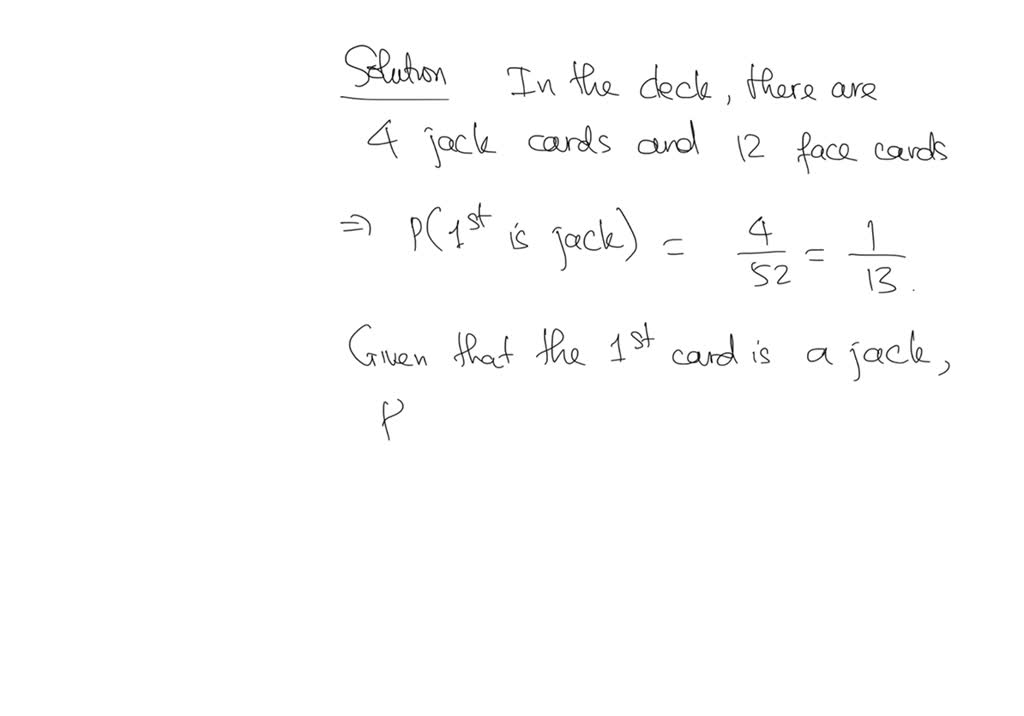 Solution In the deck, there are
4 jack cards and 12 face cards
⇒ P(1st is jack) = 4/52 = 1/13.
Given that the 1st card is a jack,
P